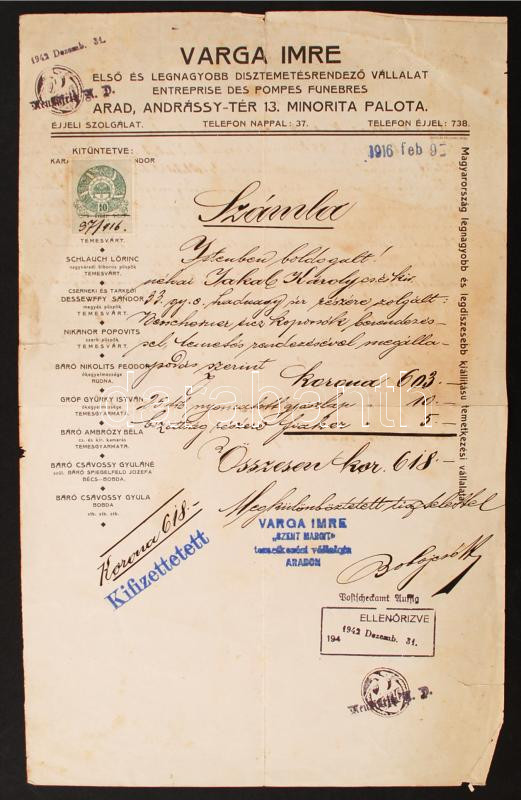 1942 Dezemb. 31.
VARGA IMRE
ELSŐ ÉS LEGNAGYOBB DISZTEMETÉSRENDEZŐ VÁLLALAT
ENTREPRISE DES POMPES FUNEBRES
ARAD, ANDRÁSSY-TÉR 13. MINORITA PALOTA.
ÉJJELI SZOLGÁLAT. TELEFON NAPPAL: 37. TELEFON ÉJJEL: 738.
KITÜNTETVE:
1916 feb
10
97/916.
TEMESVÁRT.
SCHLAUCH LŐRINC
nagyváradi biboros püspök
TEMESVÁRT.
CSERNEKI ÉS TARKEŐI
DESSEWFFY SÁNDOR
megyés püspök
TEMESVÁRT.
NIKANOR POPOVITS
szerb püspök
TEMESVÁRT.
BÁRÓ NIKOLITS FEODOR
őkegyelmessége
RUDNA.
GRÓF GYÜRKY ISTVÁN
őkegyelmessége
TEMESGYARMATA.
BÁRÓ AMBRÓZY BÉLA
cs. és kir. kamarás
TEMESGYARMATA.
BÁRÓ CSÁVOSSY GYULÁNÉ
SZÜL. BÁRÓ SPIEGELFELD JOZEFA
BÉCS—BOBDA.
BÁRÓ CSÁVOSSY GYULA
BOBDA
stb. stb. stb.
Magyarország legnagyobb és legdiszesebb kiállitásu temetkezési vállalata.
Számla
Istenben boldogult!
néhai Jakab Károly cs és kir
33. gy. e. hadnagy úr részére szolgált:
koporsók berendezés-
sel, temetés rendezésével megálla-
podás szerint Korona 603.—
nyomtatott gyászlap " 10.—
részére fiaker " 5.—
Összesen kor. 618.—
Megkülönböztetett tisztelettel
Korona 618.—
Kifizettetett
VARGA IMRE
„SZENT MARGIT"
temetkezési vállalata
ARADON
Postscheckamt Aussig
ELLENŐRIZVE
194
1942 Dezemb. 31.
darabanth